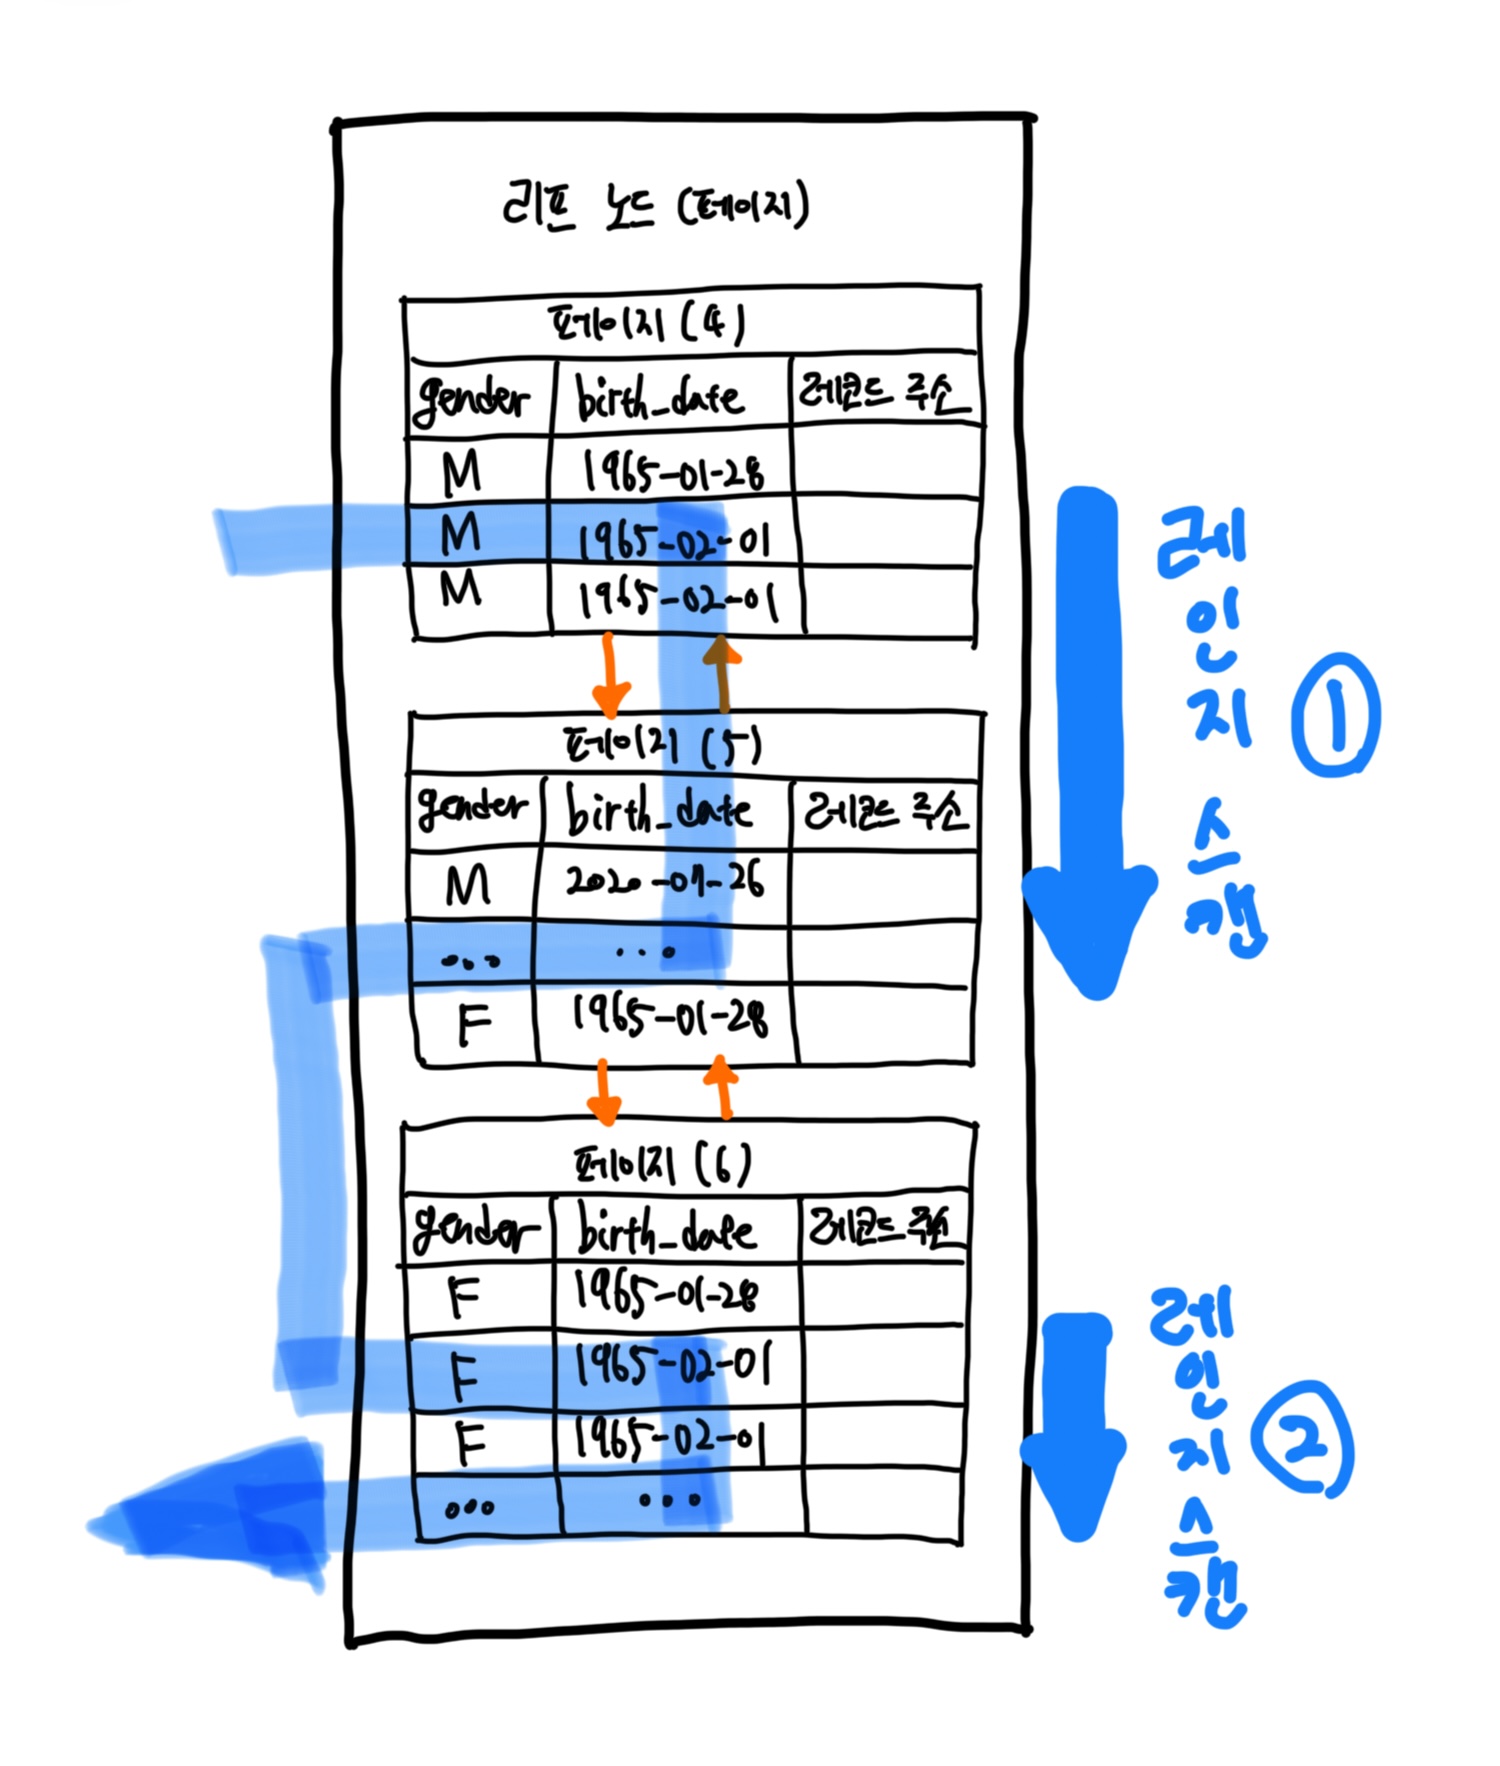 리프 노드 (페이지)
페이지 (4)
gender birth_date 레코드 주소
M 1965-01-28
M 1965-02-01
M 1965-02-01
페이지 (5)
gender birth_date 레코드 주소
M 2020-07-26
... ...
F 1965-01-28
페이지 (6)
gender birth_date 레코드 주소
F 1965-01-28
F 1965-02-01
F 1965-02-01
... ...
레인지 스캔 ①
레인지 스캔 ②